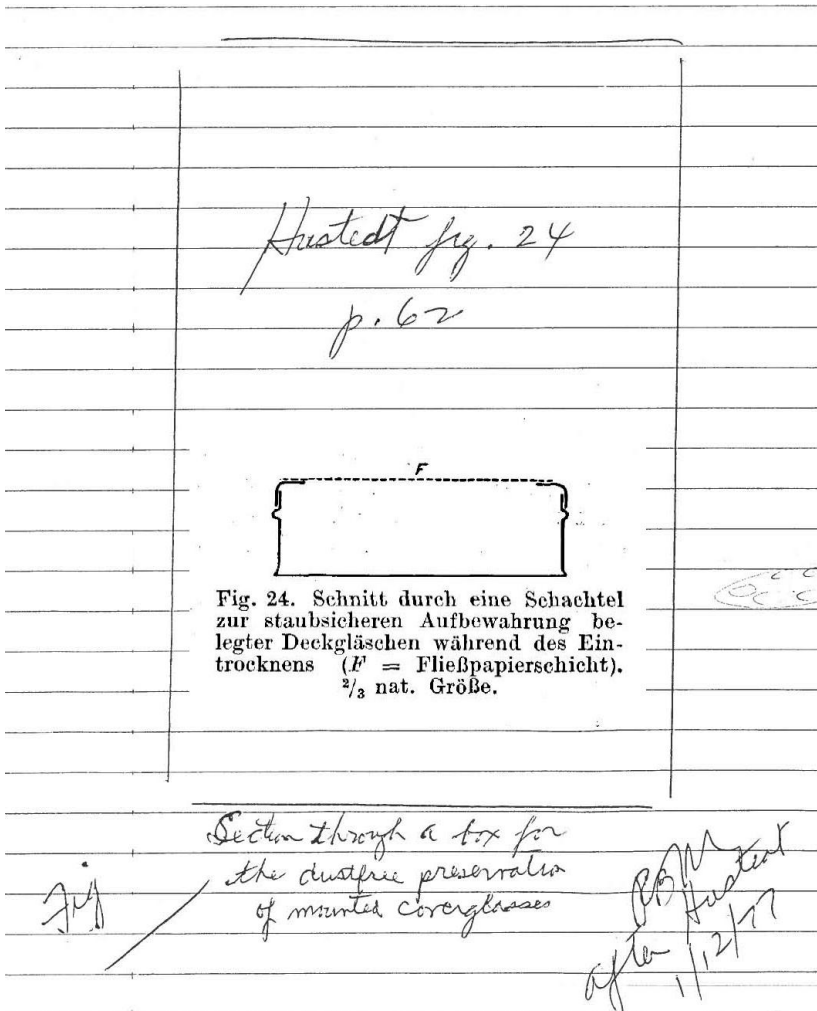 Hustedt fig. 24
p. 62
F
Fig. 24. Schnitt durch eine Schachtel
zur staubsicheren Aufbewahrung be-
legter Deckgläschen während des Ein-
trocknens (F = Fließpapierschicht).
2/3 nat. Größe.
Section through a box for
the dustfree preservation
of mounted coverglasses
Fig
after Hustedt
1/12/77